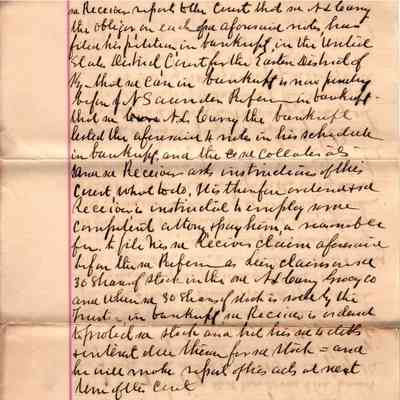 sa Receiver report to the Court that sa A L Curry
the obligor on each of sa aforesaid notes has
filed his petition in bankruptcy in the United
State District Court for the Eastern District of
Ky. that sa case in bankruptcy is now pending
before J N Saunders Referee in bankrupt-
that sa A L Curry the bankrupt
listed the aforesaid 4 notes in his schedule
in bankruptcy and the sa collaterals
sa Receiver asks instruction of this
Court what to do. It is therefore ordered sa
Receiver is instructed to employ some
competent attorney & pay him a reasonable
fee to file his sa Receivers claim aforesaid
before the sa Referee as lien claims on sa
30 Shares of stock in the one A L Curry Grocery Co
and when sa 30 Shares of stock is sold by the
Trust- in bankruptcy sa Receiver is ordered
to protect sa stock and bid his sa debts
& interest due them for sa stock = and
he will make report of his acts at next
term of the Court